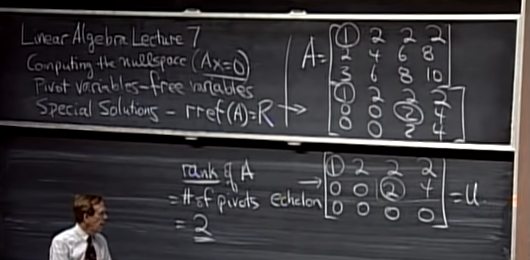 Linear Algebra Lecture 7
Computing the nullspace (Ax=0)
Pivot variables-free variables
Special Solutions - rref(A)=R
A=
1 2 2 2
2 4 6 8
3 6 8 10
→
1 2 2 2
0 0 2 4
0 0 2 4
rank of A
= # of pivots
= 2
echelon →
1 2 2 2
0 0 2 4
0 0 0 0
= U